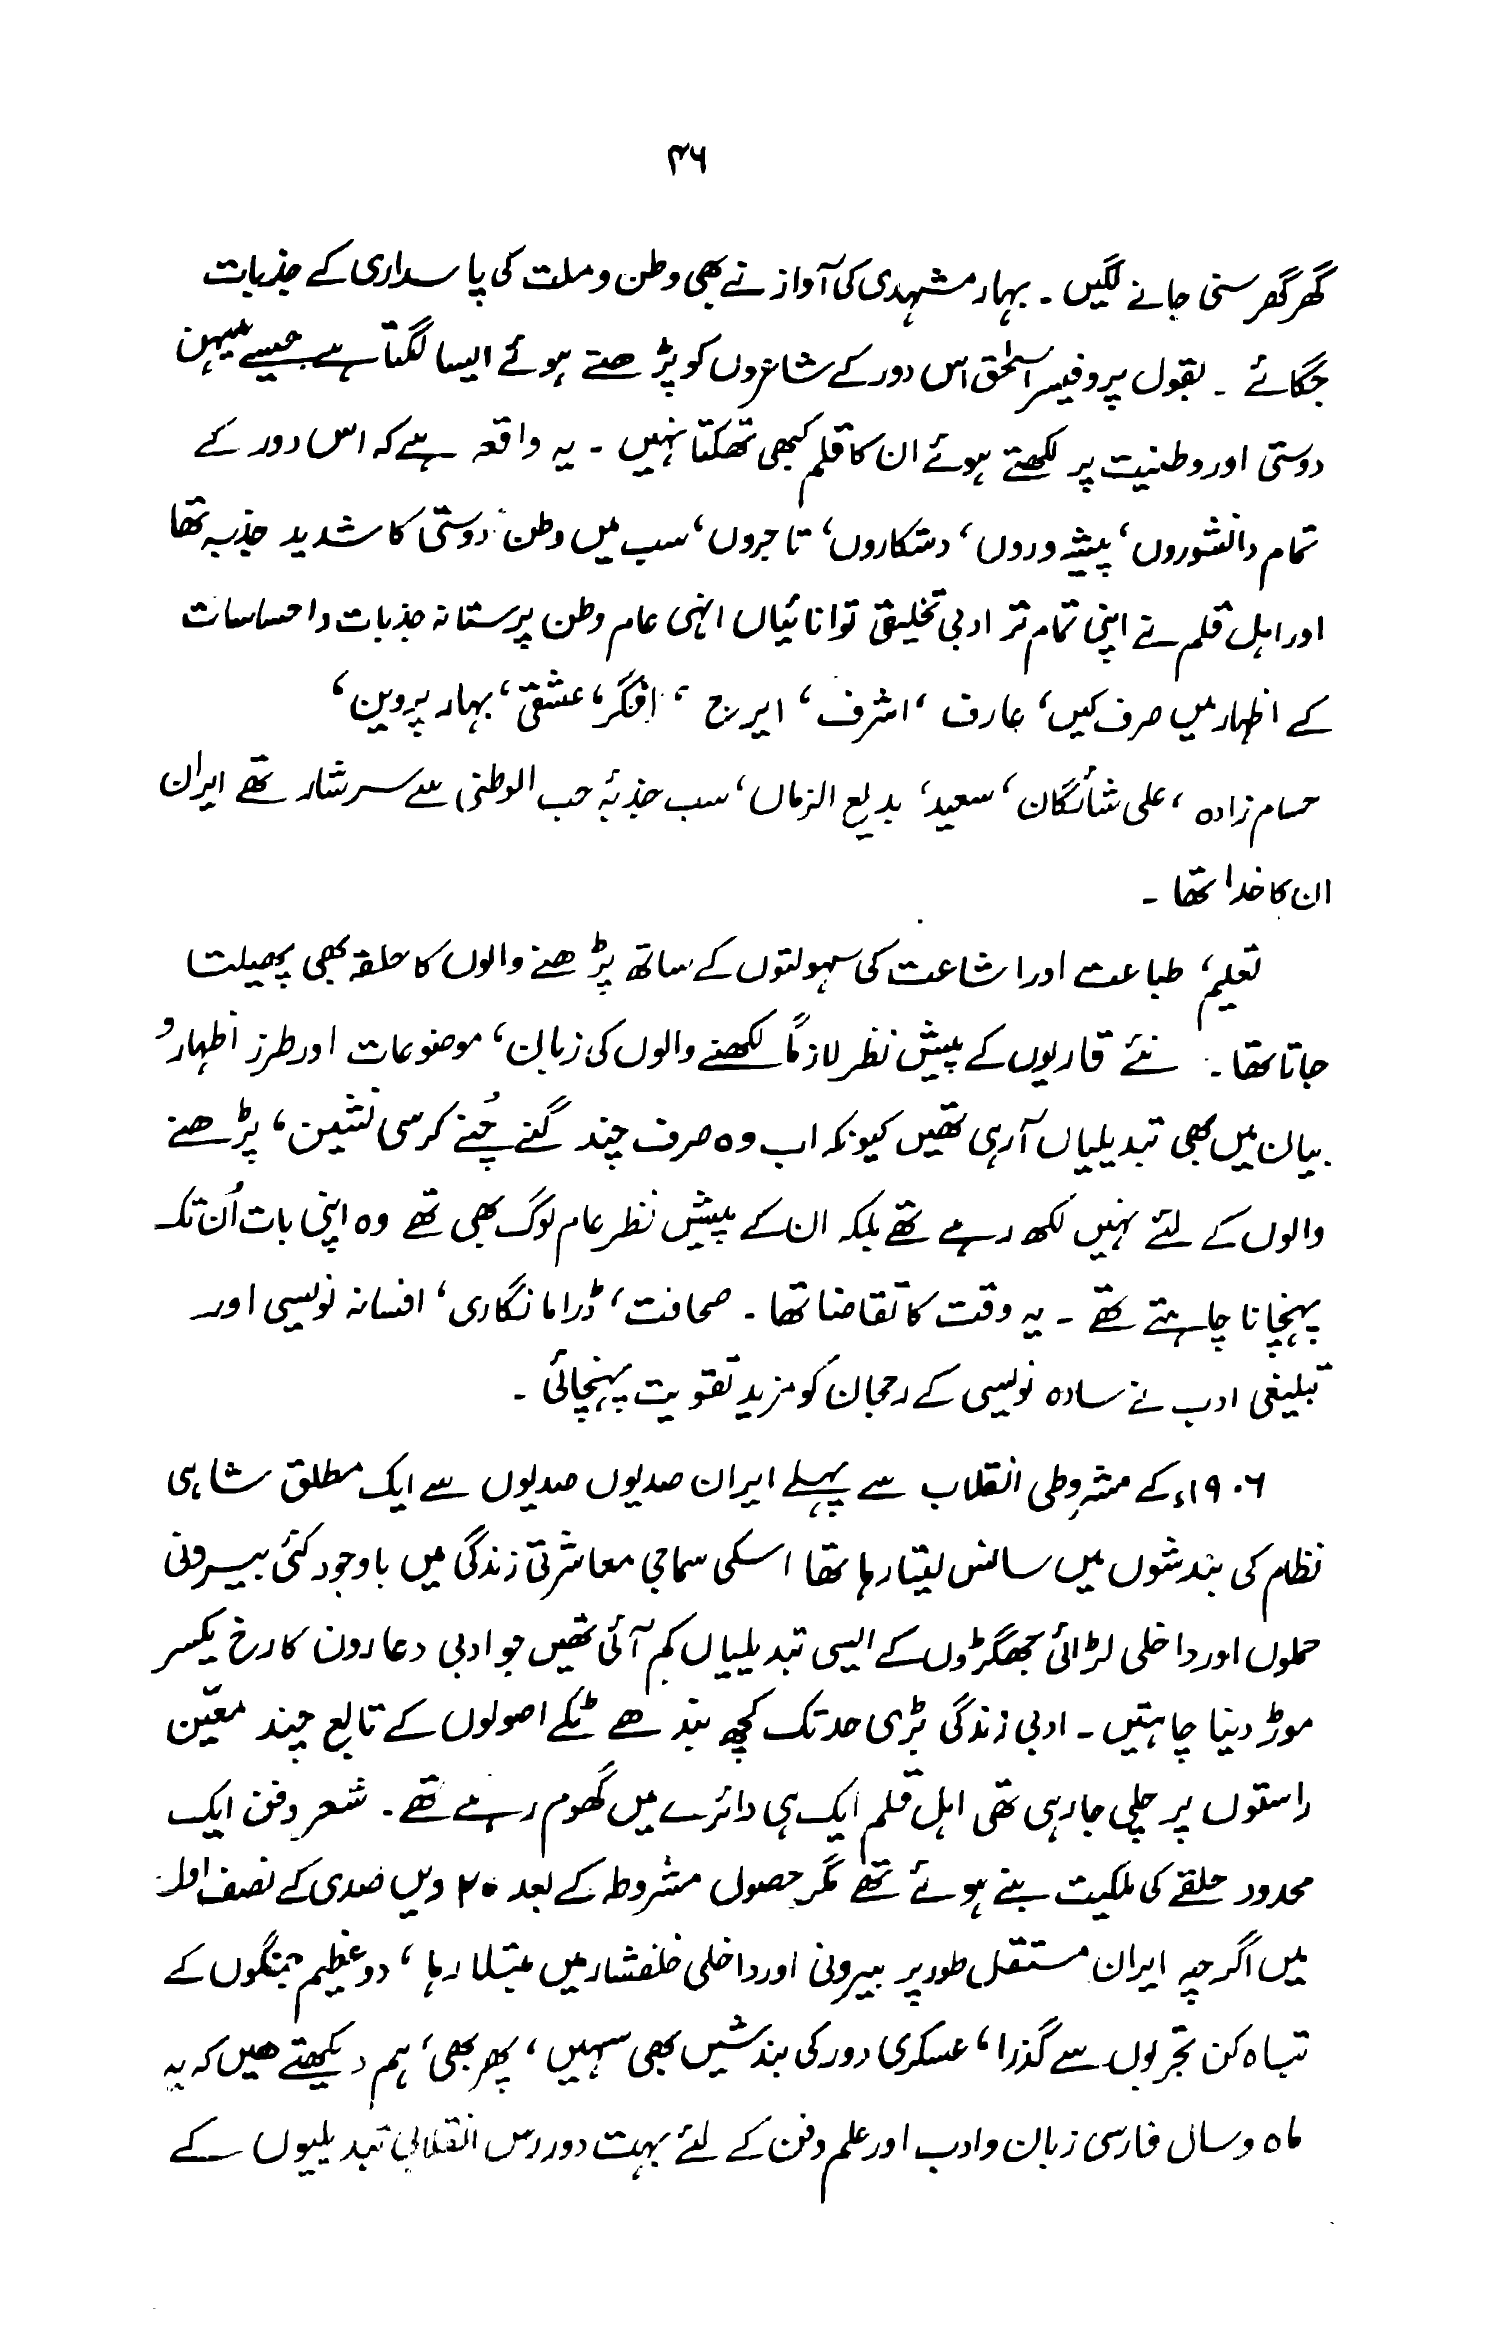 ۴۶
گھر گھر سنی جانے لگیں ۔ بہار مشہدی کی آواز نے بھی وطن و ملت کی پاسداری کے جذبات
جگائے ۔ بقول پروفیسر اسحٰق اس دور کے شاعروں کو پڑھتے ہوئے ایسا لگتا ہے جیسے میہن
دوستی اور وطنیت پر لکھتے ہوئے ان کا قلم کبھی تھکتا نہیں ۔ یہ واقعہ ہے کہ اس دور کے
تمام دانشوروں، پیشہ وروں، دستکاروں، تاجروں، سب میں وطن دوستی کا شدید جذبہ تھا
اور اہل قلم نے اپنی تمام تر ادبی تخلیقی توانائیاں انہی عام وطن پرستانہ جذبات و احساسات
کے اظہار میں صرف کیں، عارف، اشرف، ایرج، افگر، عشقی، بہار پروین،
حسام زادہ، علی شائگان، سعید، بدیع الزماں، سب جذبۂ حب الوطنی سے سرشار تھے ایران
ان کا خدا تھا ۔
تعلیم، طباعت اور اشاعت کی سہولتوں کے ساتھ پڑھنے والوں کا حلقہ بھی پھیلتا
جاتا تھا ۔ نئے قاریوں کے پیش نظر لازماً لکھنے والوں کی زبان، موضوعات اور طرز اظہار و
بیان میں بھی تبدیلیاں آرہی تھیں کیونکہ اب وہ صرف چند گنے چُنے کرسی نشین، پڑھنے
والوں کے لئے نہیں لکھ رہے تھے بلکہ ان کے پیش نظر عام لوگ بھی تھے وہ اپنی بات اُن تک
پہنچانا چاہتے تھے ۔ یہ وقت کا تقاضا تھا ۔ صحافت، ڈراما نگاری، افسانہ نویسی اور
تبلیغی ادب نے سادہ نویسی کے رجحان کو مزید تقویت پہنچائی ۔
۱۹۰۶ء کے مشروطی انقلاب سے پہلے ایران صدیوں صدیوں سے ایک مطلق شاہی
نظام کی بندشوں میں سانس لیتا رہا تھا اسکی سماجی معاشرتی زندگی میں باوجود کئی بیرونی
حملوں اور داخلی لڑائی جھگڑوں کے ایسی تبدیلیاں کم آئی تھیں جو ادبی دھاروں کا رخ یکسر
موڑ دینا چاہتیں ۔ ادبی زندگی بڑی حد تک کچھ بندھے ٹکے اصولوں کے تابع چند معیّن
راستوں پر چلی جارہی تھی اہل قلم ایک ہی دائرے میں گھوم رہے تھے ۔ شعر و فن ایک
محدود حلقے کی ملکیت بنے ہوئے تھے مگر حصول مشروطہ کے بعد ۲۰ ویں صدی کے نصف اول
میں اگرچہ ایران مستقل طور پر بیرونی اور داخلی خلفشار میں مبتلا رہا، دو عظیم جنگوں کے
تباہ کن تجربوں سے گذرا، عسکری دور کی بندشیں بھی سہیں، پھر بھی، ہم دیکھتے ھیں کہ یہ
ماہ و سال فارسی زبان و ادب اور علم و فن کے لئے بہت دور رس انقلابی تبدیلیوں کے